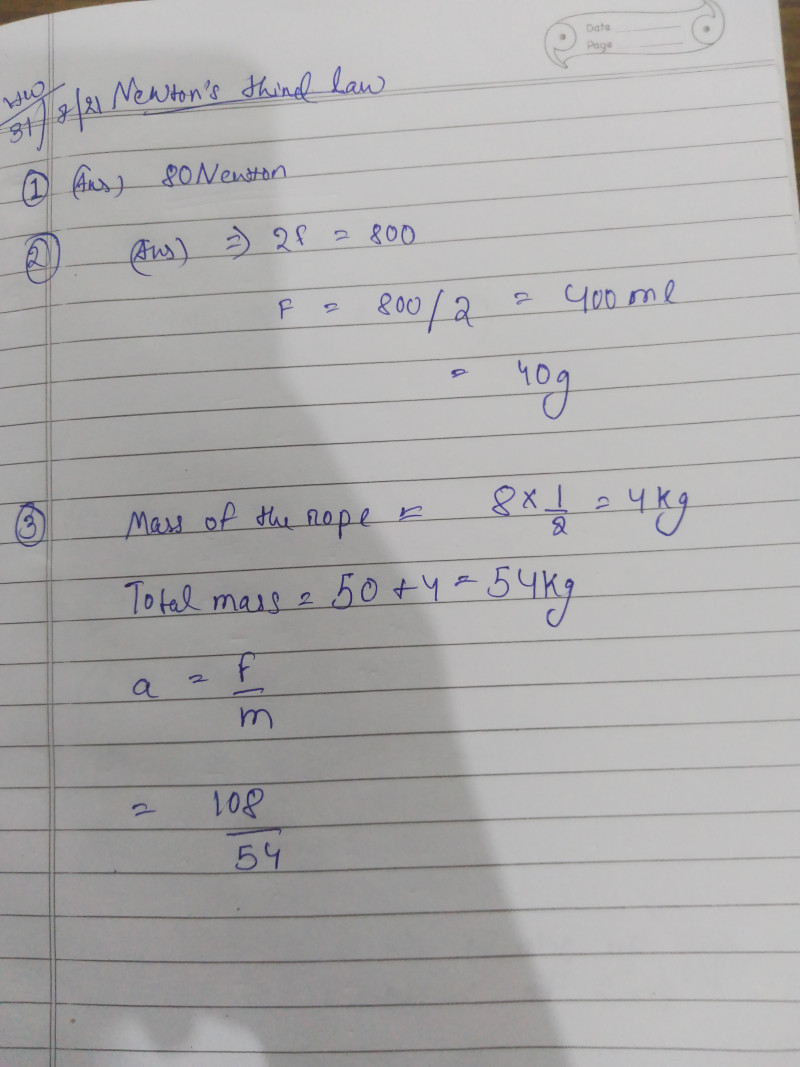 Date
Page
HW
31/8/21 Newton's third law
① (Ans) 80 Newton
② (Ans) ⇒ 2F = 800
F = 800/2 = 400 ml
= 40g
③ Mass of the rope = 8 × 1/2 = 4 kg
Total mass = 50 + 4 = 54 kg
a = F/m
= 108/54